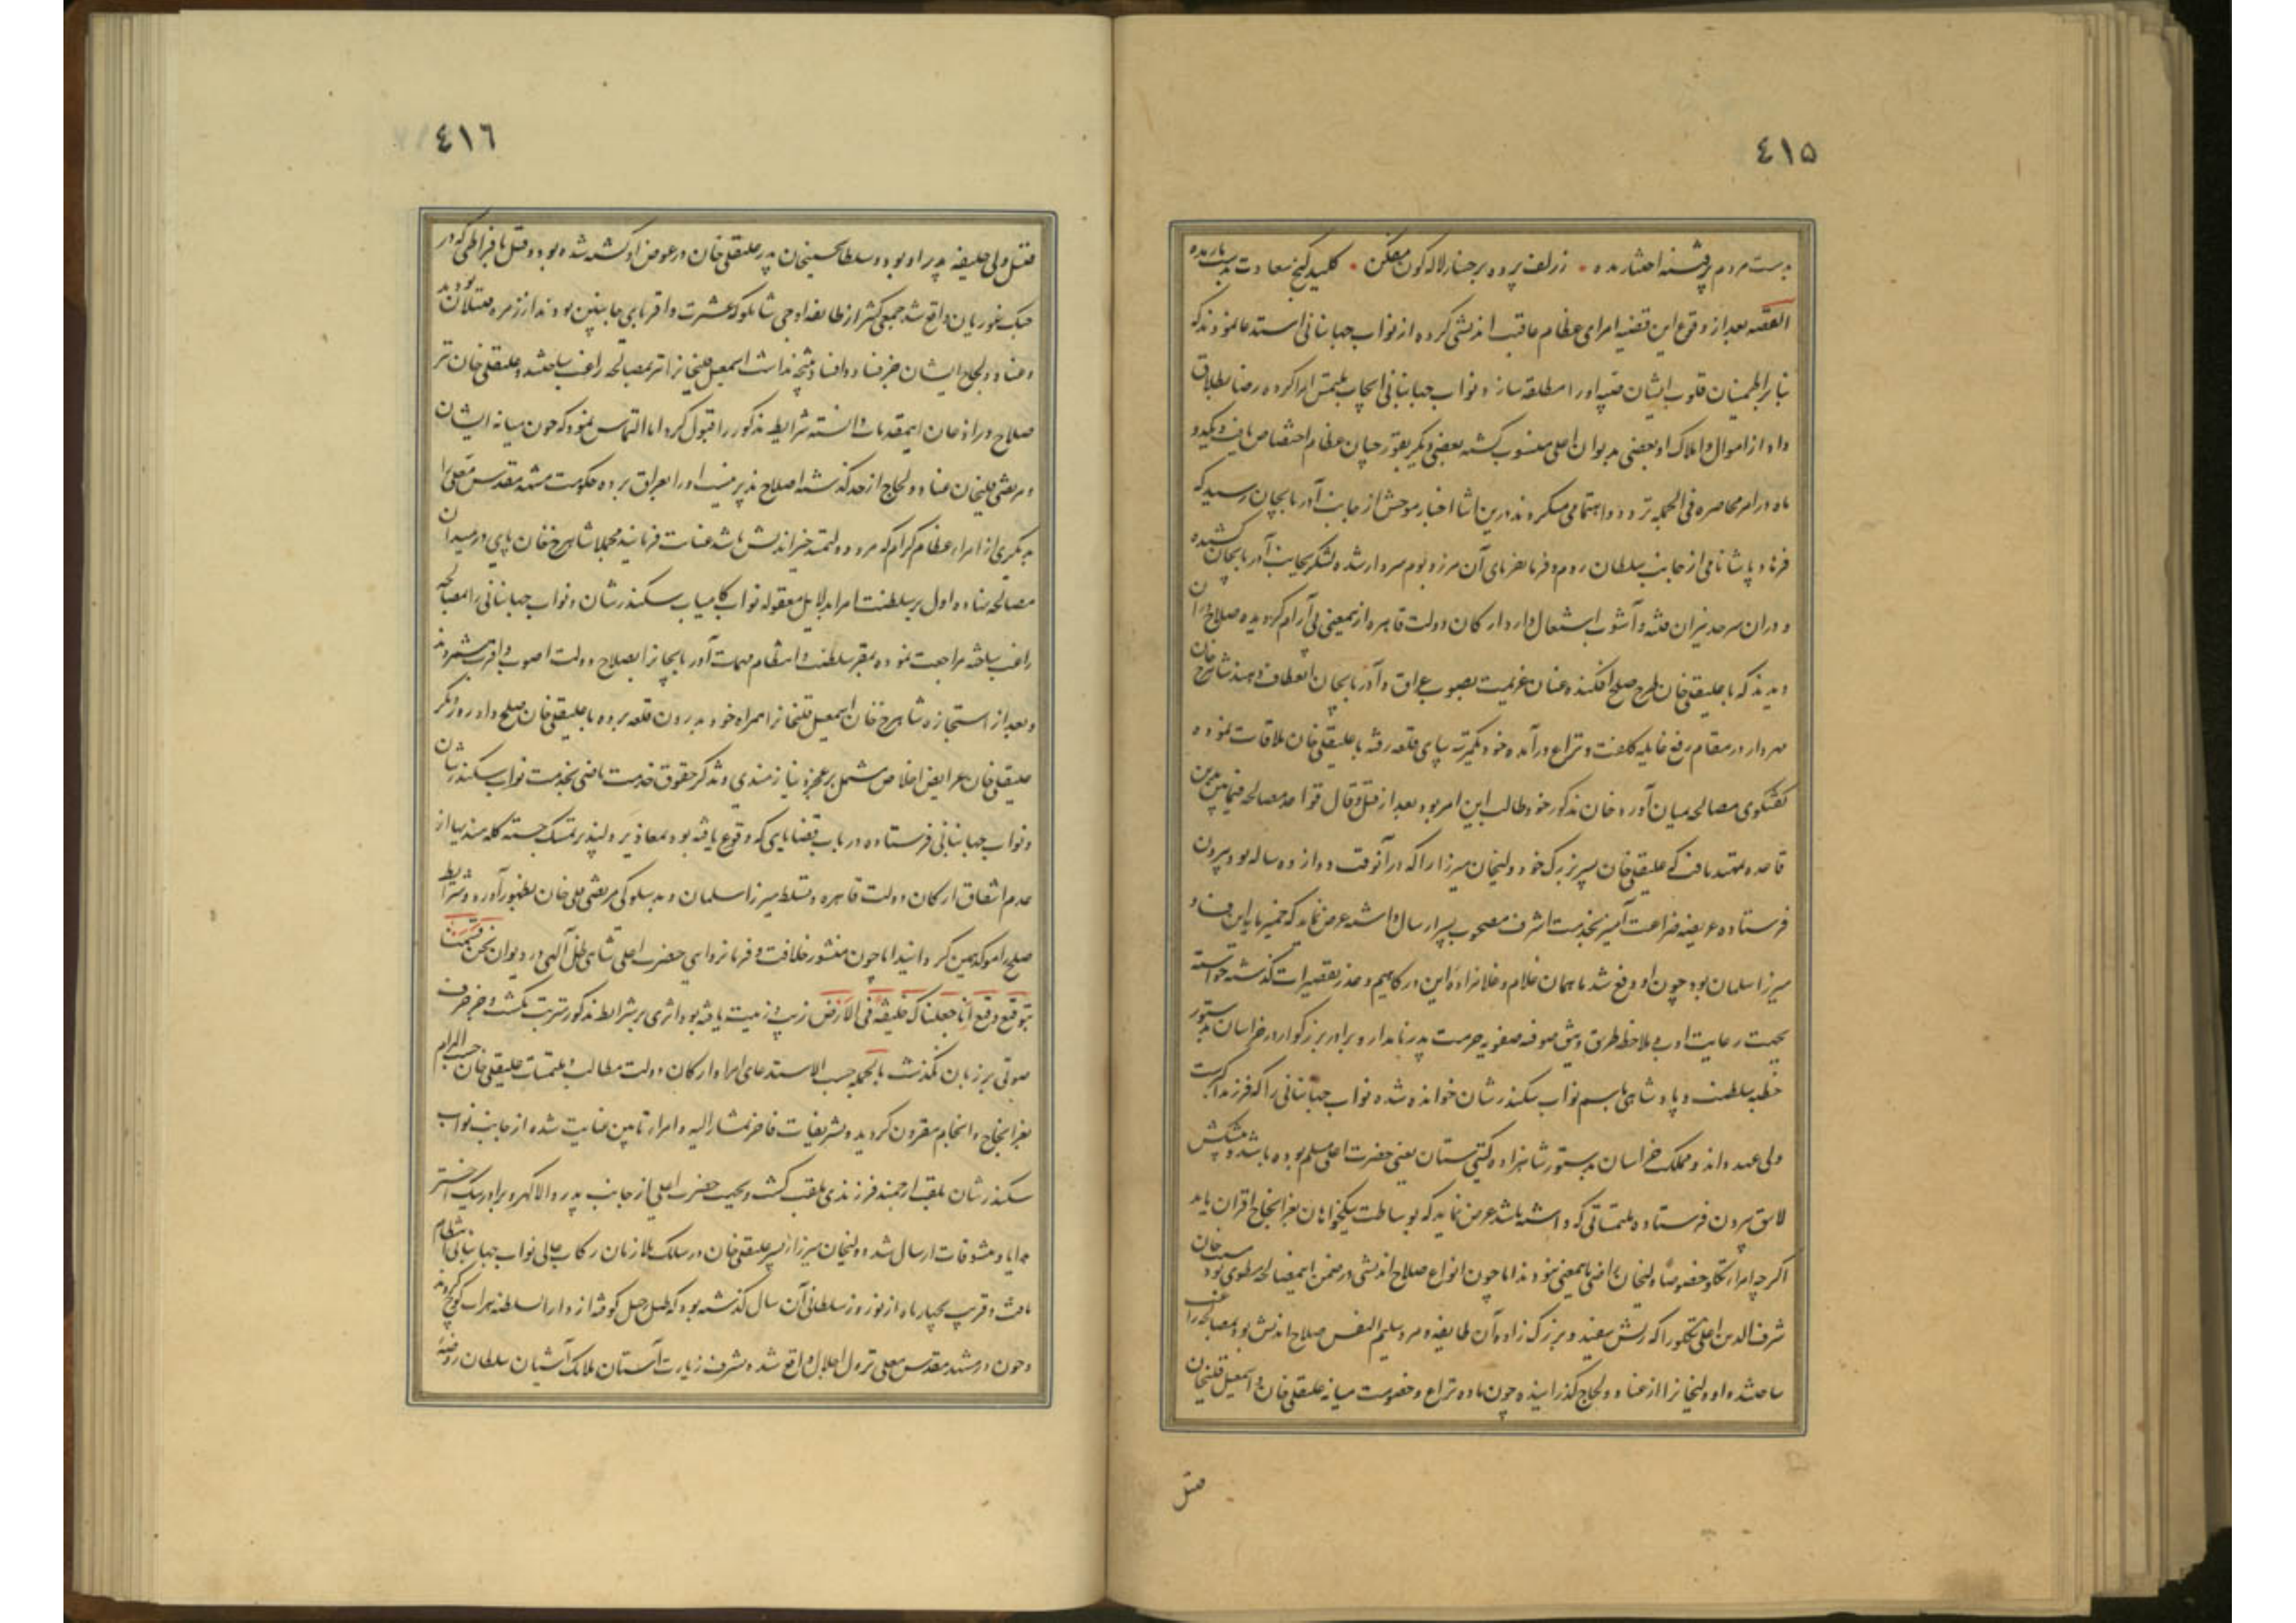 ٤١٥
بدست مردم پرفتنه اختیار مده زلف پرده برخسار لاله‌کون مفکن کلید کنج سعادت بدست مار مده
القصه بعد از وقوع این قضیه امرای عظام عاقبت اندیشی کرده از نواب جهانبانی استدعا نمودند که
بنابر اطمینان قلوب ایشان صبیه او را مطلقه سازد نواب جهانبانی ایجاب ملتمس امرا کرده رضا بطلاق
داد از اموال و املاک او بعضی بدیوان اعلی منسوب کشته بعضی دیکر بقورچیان عظام اختصاص یافت و یکدو
ماه در امر محاصره فی الجمله تردد و اهتمامی میکردند درین اثنا اخبار موحش از جانب آذربایجان رسید که
فرهاد پاشا نامی از جانب سلطان روم و فرمانفرمای آن مرز و بوم سردار شده لشکر بجانب آذربایجان کشیده
و در آن سرحد نیران فتنه و آشوب اشتعال دارد ارکان دولت قاهره ازینمعنی بی آرام کردیده صلاح در آن
دیدند که با علیقلی خان طرح صلح افکنده عنان عزیمت بصوب عراق و آذربایجان انعطاف دهند شاهرخ خان
مهردار در مقام رفع غایله کلفت و نزاع درآمده خود یکمرتبه بپای قلعه رفته با علیقلی خان ملاقات نموده
کفتکوی مصالحه بمیان آورد خان مذکور خود طالب این امر بود بعد از قیل و قال قواعد مصالحه فیما بین بدین
قاعده تمهید یافت که علیقلی خان پسر بزرک خود ولیخان میرزا را که در آنوقت دوازده ساله بود بیرون
فرستاده عریضه ضراعت آمیز بخدمت اشرف مصحوب پسر ارسال داشته عرض نماید که خمیرمایه این فساد
میرزا سلمان بود چون او دفع شد ما همان غلام و غلامزاده این درکاهیم و عذر تقصیرات کذشته خواسته
بجهت رعایت ادب و ملاحظه طریق و روش صوفیه صفویه حرمت پدر نامدار و برادر بزرکوار در خراسان بدستور
خطبه سلطنت و پادشاهی باسم نواب سکندرشان خوانده شده نواب جهانبانی را که فرزند اکبرست
ولی عهد داند و مملکت خراسان بدستور شاهزاده کیتی ستان یعنی حضرت اعلی مسلم بوده باشد و پیشکش
لایق بیرون فرستاده ملتمساتی که داشته باشد عرض نماید که بوساطت نیکخواهان بعز انجاح اقتران یابد
اکرچه امراء تکلو خصوصا ولیخان راضی باینمعنی نبودند اما چون انواع صلاح اندیشی در ضمن اینمصالحه منطوی بود
شرف الدین اغلی تکلو را که ریش سفید و بزرک زاده آن طایفه و مرد سلیم النفس صلاح اندیش بود بمصالحه راغب
ساخته او ولیخانرا از عناد و لجاج کذرانیده چون ماده نزاع و خصومت میانه علیقلی خان و اسمعیل قلیخان
قتل
٤١٦
قتل ولی خلیفه پدر او بود و سلطان حسینخان پدر علیقلی خان در عوض او کشته شده بود و قتل با فراطی که در
جنک غوریان واقع شد جمعی کثیر از طایفه اوجی شاملو که عشیرت و اقربای جانبین بودند از زمره مقتولان بودند
و عناد و لجاج ایشان جز فساد و افنا نتیجه نداشت اسمعیل قلیخانرا نیز بمصالحه راغب ساختند و علیقلی خان نیز
صلاح در اذعان اینمقدمات دانسته شرایط مذکور را قبول کرد اما التماس نمود که چون میانه ایشان
و مرتضی قلیخان عناد و لجاج از حد کذشته اصلاح پذیر نیست او را بعراق برده حکومت مشهد مقدس معلی را
بدیکری از امراء عظام کرام که مرد دولتمند خیراندیش باشد عنایت فرمایند مجملا شاهرخ خان پای در میدان
مصالحه نهاده اول بر سلطنت امرا بدلایل معقوله نواب کامیاب سکندرشان و نواب جهانبانی را بمصالحه
راغب ساخته مراجعت نمودن بمقر سلطنت و انتظام مهمات آذربایجانرا بصلاح دولت اصوب و اقرب شمردند
و بعد از استجازه شاهرخ خان اسمعیل قلیخانرا همراه خود بدرون قلعه برده با علیقلی خان صلح داد روز دیکر
علیقلی خان عرایض اخلاص مشتمل بر عجز و نیازمندی و تذکر حقوق خدمت ماضی بخدمت نواب سکندرشان
و نواب جهانبانی فرستاده در باب قضایایی که وقوع یافته بود بمعاذیر دلپذیر تمسک جسته کله مندیها از
عدم اشفاق ارکان دولت قاهره و تسلط میرزا سلمان و بدسلوکی مرتضی قلی خان بظهور آورد و شرایط
صلح را موکد بیمین کردانید اما چون منشور خلافت و فرمانروایی حضرت اعلی شاهی ظل الهی در دیوان نحن قسمنا
بتوقیع وقیع انا جعلناک خلیفة فی الارض زیب و زینت یافته بود اثری بر شرایط مذکور مترتب نکشت و جز حرف
صوتی بر زبان نکذشت بالجمله حسب الاستدعای امرا و ارکان دولت مطالب و ملتمسات علیقلی خان حسب المرام
بعز انجاح و انجام مقرون کردید و تشریفات فاخره بمشارالیه و امراء تابین عنایت شده از جانب نواب
سکندرشان بلقب ارجمند فرزندی ملقب کشت و بجهت حضرت اعلی از جانب پدر والاکهر و برادر نیک اختر
هدایا و تنسوقات ارسال شده ولیخان میرزا پسر علیقلی خان در سلک ملازمان رکاب عالی نواب جهانبانی انتظام
یافت و قریب بچهار ماه از نوروز سلطانی آن سال کذشته بود که طبل رحیل کوفته از دارالسلطنه هرات کوچ کردند
و چون در مشهد مقدس معلی نزول اجلال واقع شد بشرف زیارت آستان ملایک آشیان سلطان روضه